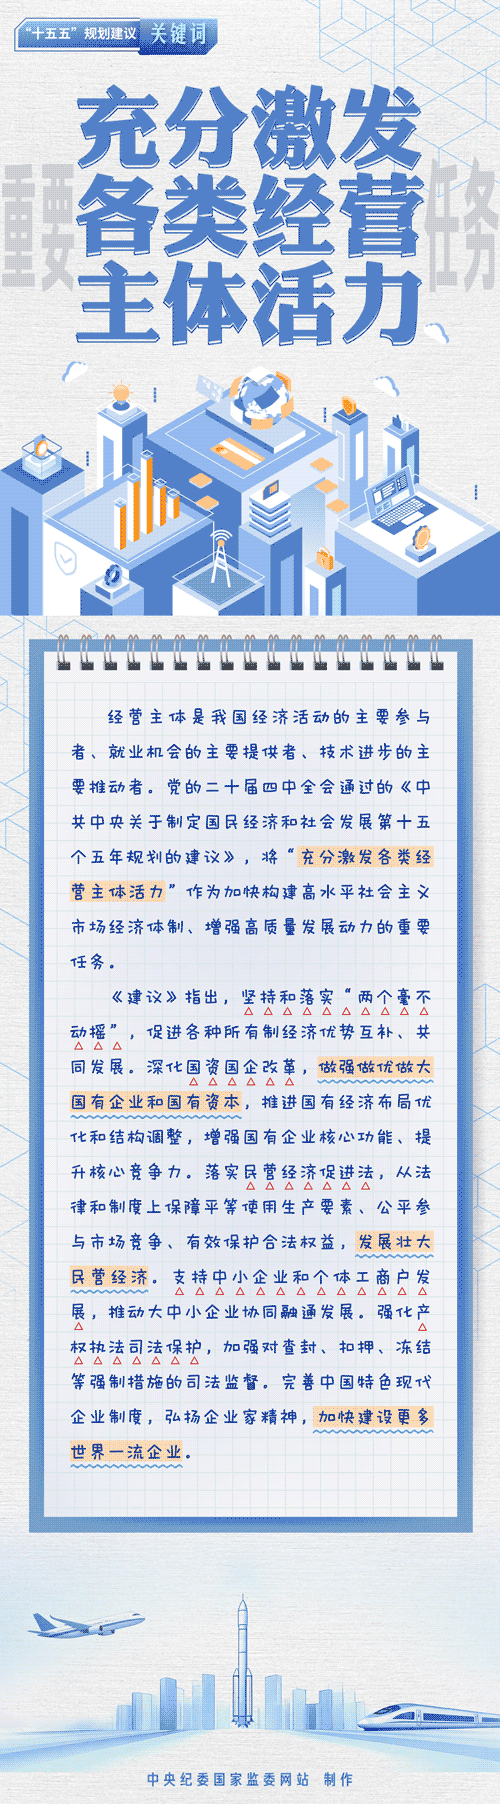 “十五五”规划建议 关键词
充分激发
各类经营
主体活力
重要
任务
经营主体是我国经济活动的主要参与
者、就业机会的主要提供者、技术进步的主
要推动者。党的二十届四中全会通过的《中
共中央关于制定国民经济和社会发展第十五
个五年规划的建议》，将“充分激发各类经
营主体活力”作为加快构建高水平社会主义
市场经济体制、增强高质量发展动力的重要
任务。
《建议》指出，坚持和落实“两个毫不
动摇”，促进各种所有制经济优势互补、共
同发展。深化国资国企改革，做强做优做大
国有企业和国有资本，推进国有经济布局优
化和结构调整，增强国有企业核心功能、提
升核心竞争力。落实民营经济促进法，从法
律和制度上保障平等使用生产要素、公平参
与市场竞争、有效保护合法权益，发展壮大
民营经济。支持中小企业和个体工商户发
展，推动大中小企业协同融通发展。强化产
权执法司法保护，加强对查封、扣押、冻结
等强制措施的司法监督。完善中国特色现代
企业制度，弘扬企业家精神，加快建设更多
世界一流企业。
中央纪委国家监委网站 制作